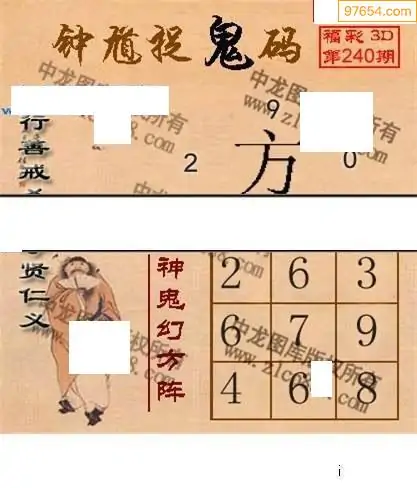 97654.com
钟馗捉鬼码
福彩3D
第240期
行善戒
中龙图库版权所有
9
方
2
0
贤仁义
神鬼幻方阵
2 6 3
6 7 9
4 6 8
中龙图库版权所有
i